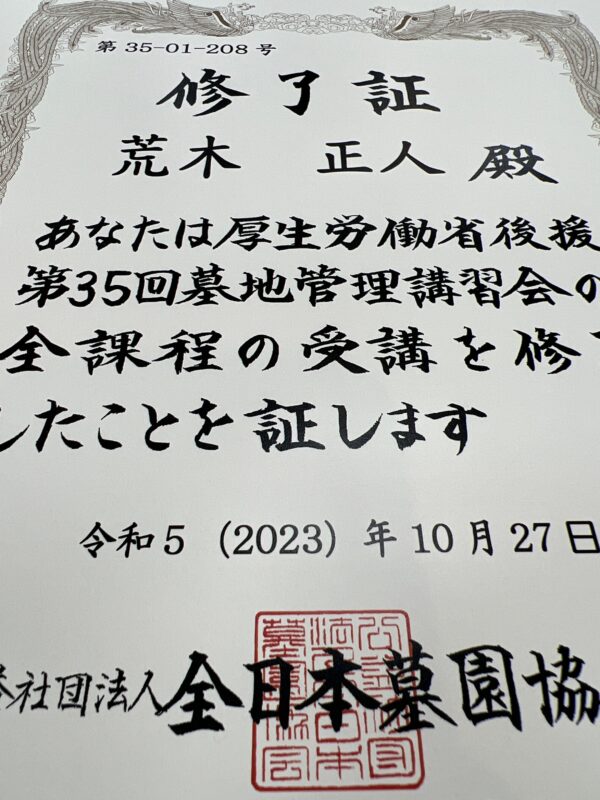 第 35-01-208 号
修了証
荒木 正人 殿
あなたは厚生労働省後援
第35回墓地管理講習会の
全課程の受講を修
したことを証します
令和5（2023）年10月27日
社団法人 全日本墓園協